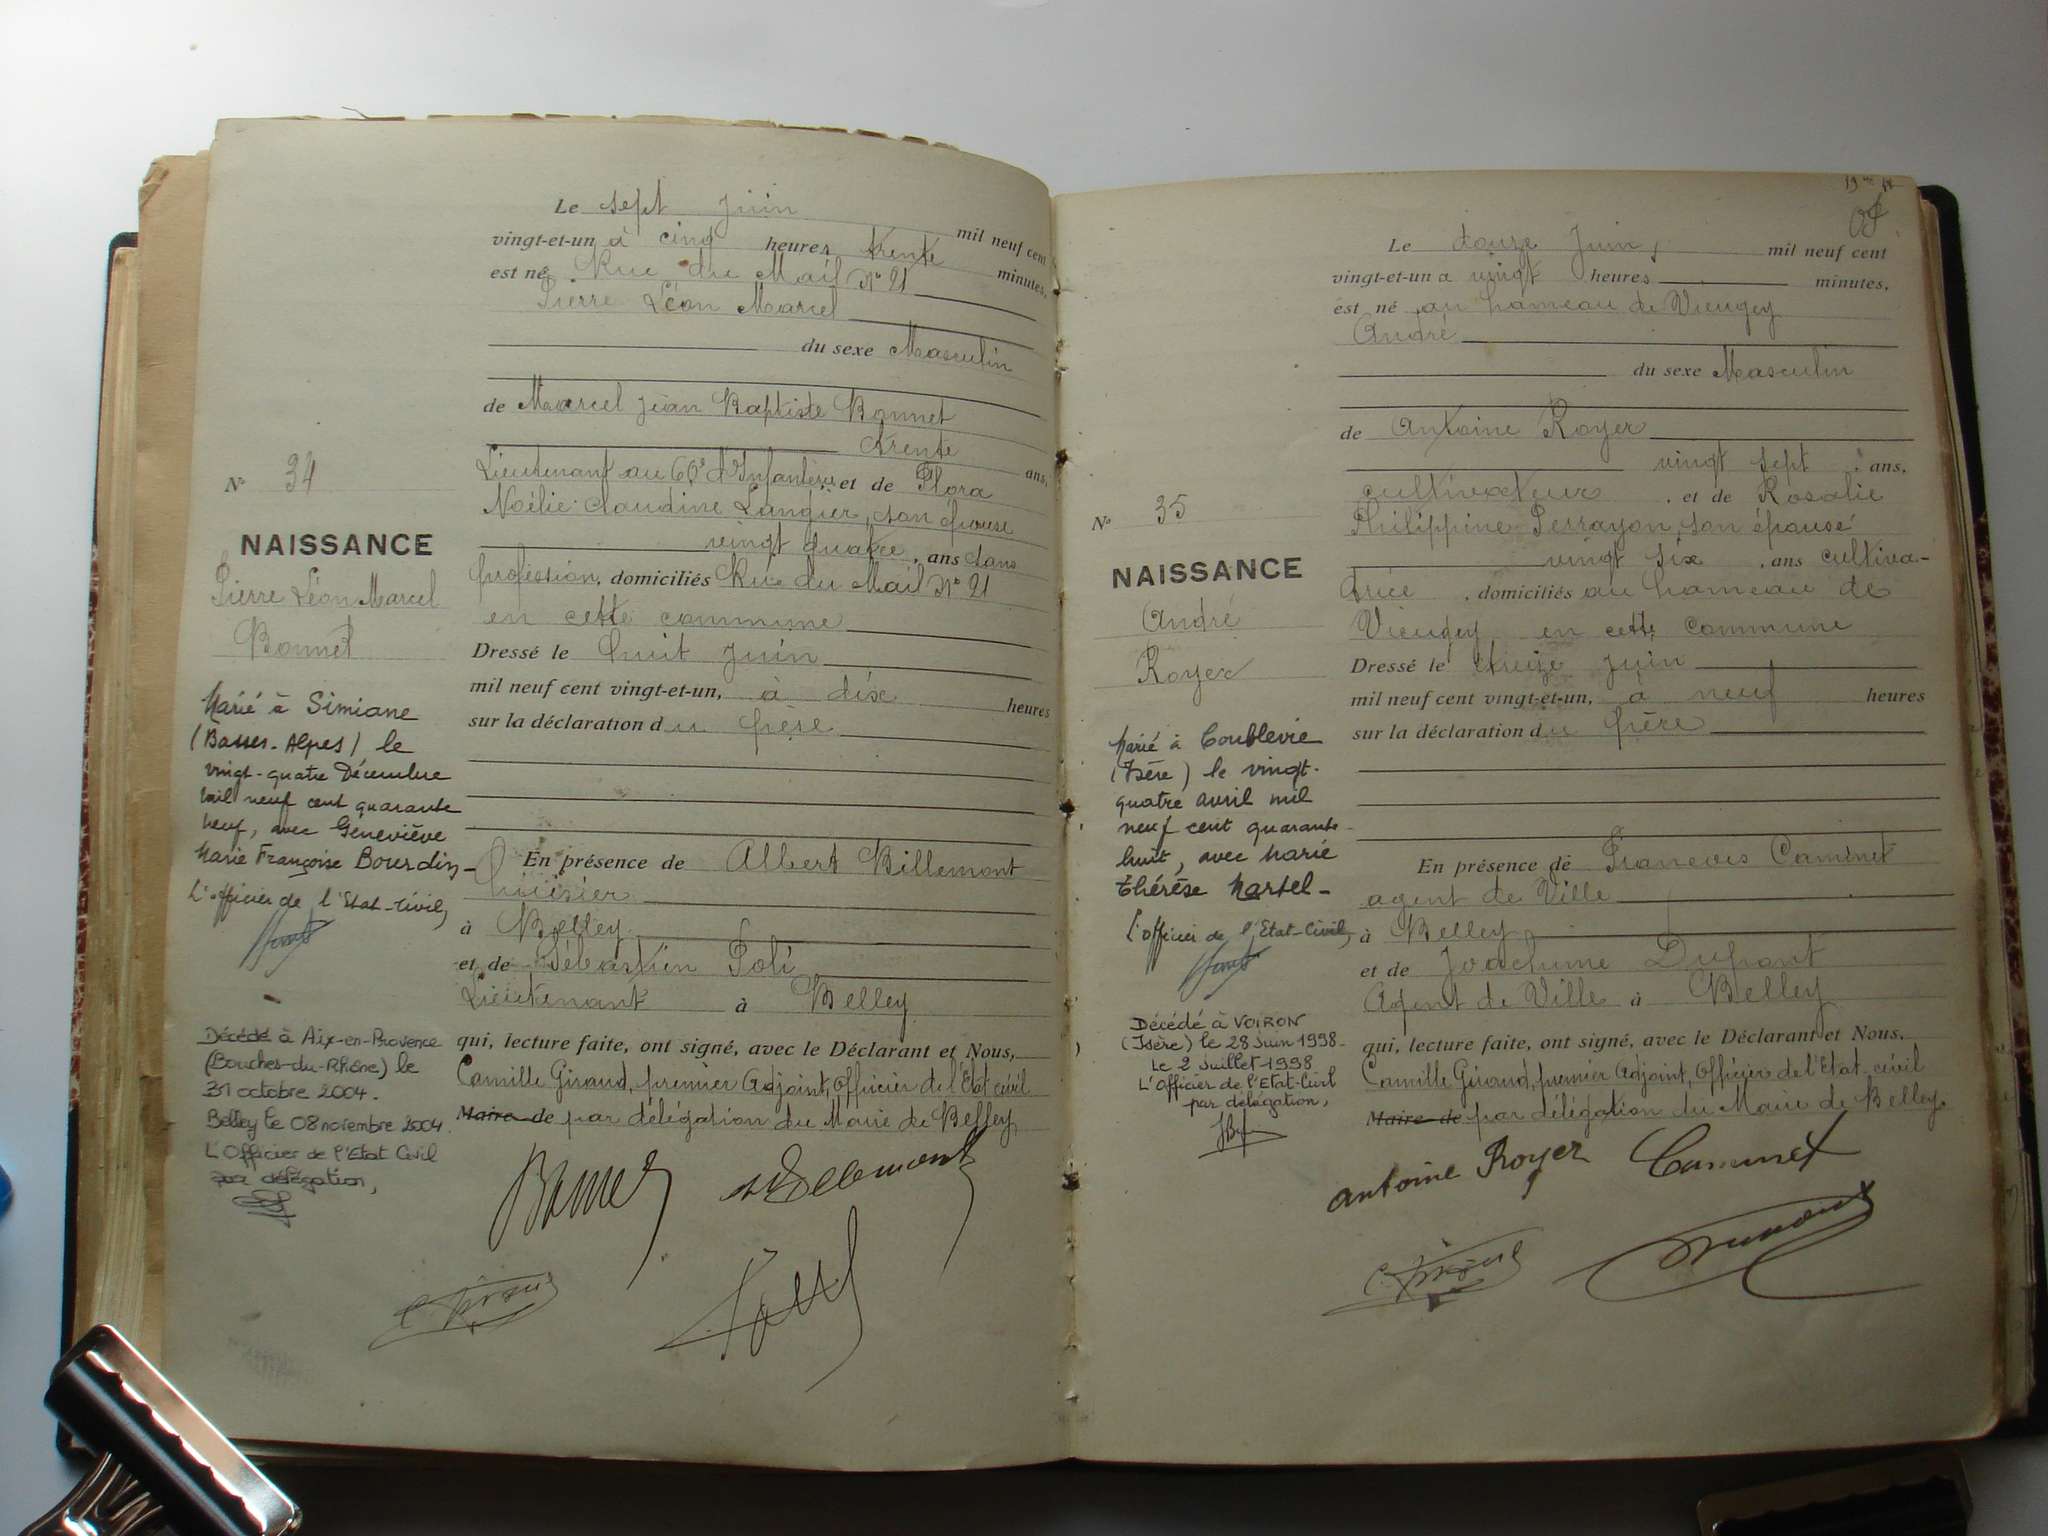 Le sept Juin mil neuf cent
vingt-et-un à cinq heures trente minutes,
est né Rue du Mail N° 21
Pierre Léon Marcel
du sexe Masculin
de Marcel Jean Baptiste Bonnet
trente ans,
Lieutenant au 60e d'Infanterie, et de Flora
Noélie Claudine Laugier, son épouse
vingt quatre, ans sans
profession, domiciliés Rue du Mail N° 21
en cette commune
Dressé le huit Juin
mil neuf cent vingt-et-un, à dix heures
sur la déclaration du père
En présence de Albert Billemont
huissier
à Belley
et de Sébastien Poli
Lieutenant à Belley
qui, lecture faite, ont signé, avec le Déclarant et Nous,
Camille Giraud, premier Adjoint, Officier de l'Etat civil
Maire de par délégation du Maire de Belley
N° 34
NAISSANCE
Pierre Léon Marcel
Bonnet
Marié à Simiane
(Basses-Alpes) le
vingt-quatre Décembre
mil neuf cent quarante
neuf, avec Geneviève
Marie Françoise Bourdin-
L'officier de l'Etat-Civil,
Décédé à Aix-en-Provence
(Bouches-du-Rhône) le
31 octobre 2004.
Belley le 08 novembre 2004.
L'Officier de l'Etat Civil
par délégation,
Bonnet
Billemont
C. Giraud
Poli
Le douze Juin, mil neuf cent
vingt-et-un a vingt heures minutes,
est né au hameau de Vieugey
André
du sexe Masculin
de Antoine Royer
vingt sept ans,
cultivateur, et de Rosalie
Philippine Perrayon, son épouse
vingt six, ans cultiva-
trice, domiciliés au hameau de
Vieugey en cette commune
Dressé le treize Juin
mil neuf cent vingt-et-un, à neuf heures
sur la déclaration du père
En présence de François Caminet
agent de Ville
à Belley
et de Joachime Dupont
Agent de Ville à Belley
qui, lecture faite, ont signé, avec le Déclarant et Nous,
Camille Giraud, premier Adjoint, Officier de l'Etat civil
Maire de par délégation du Maire de Belley.
N° 35
NAISSANCE
André
Royer
Marié à Coublevie
(Isère) le vingt-
quatre avril mil
neuf cent quarante-
huit, avec Marie
Thérèse Martel-
L'officier de l'Etat-Civil,
Décédé à VOIRON
(Isère) le 28 Juin 1998-
Le 2 Juillet 1998
L'Officier de l'Etat-Civil
par délégation,
Antoine Royer
Caminet
C. Giraud
Dupont